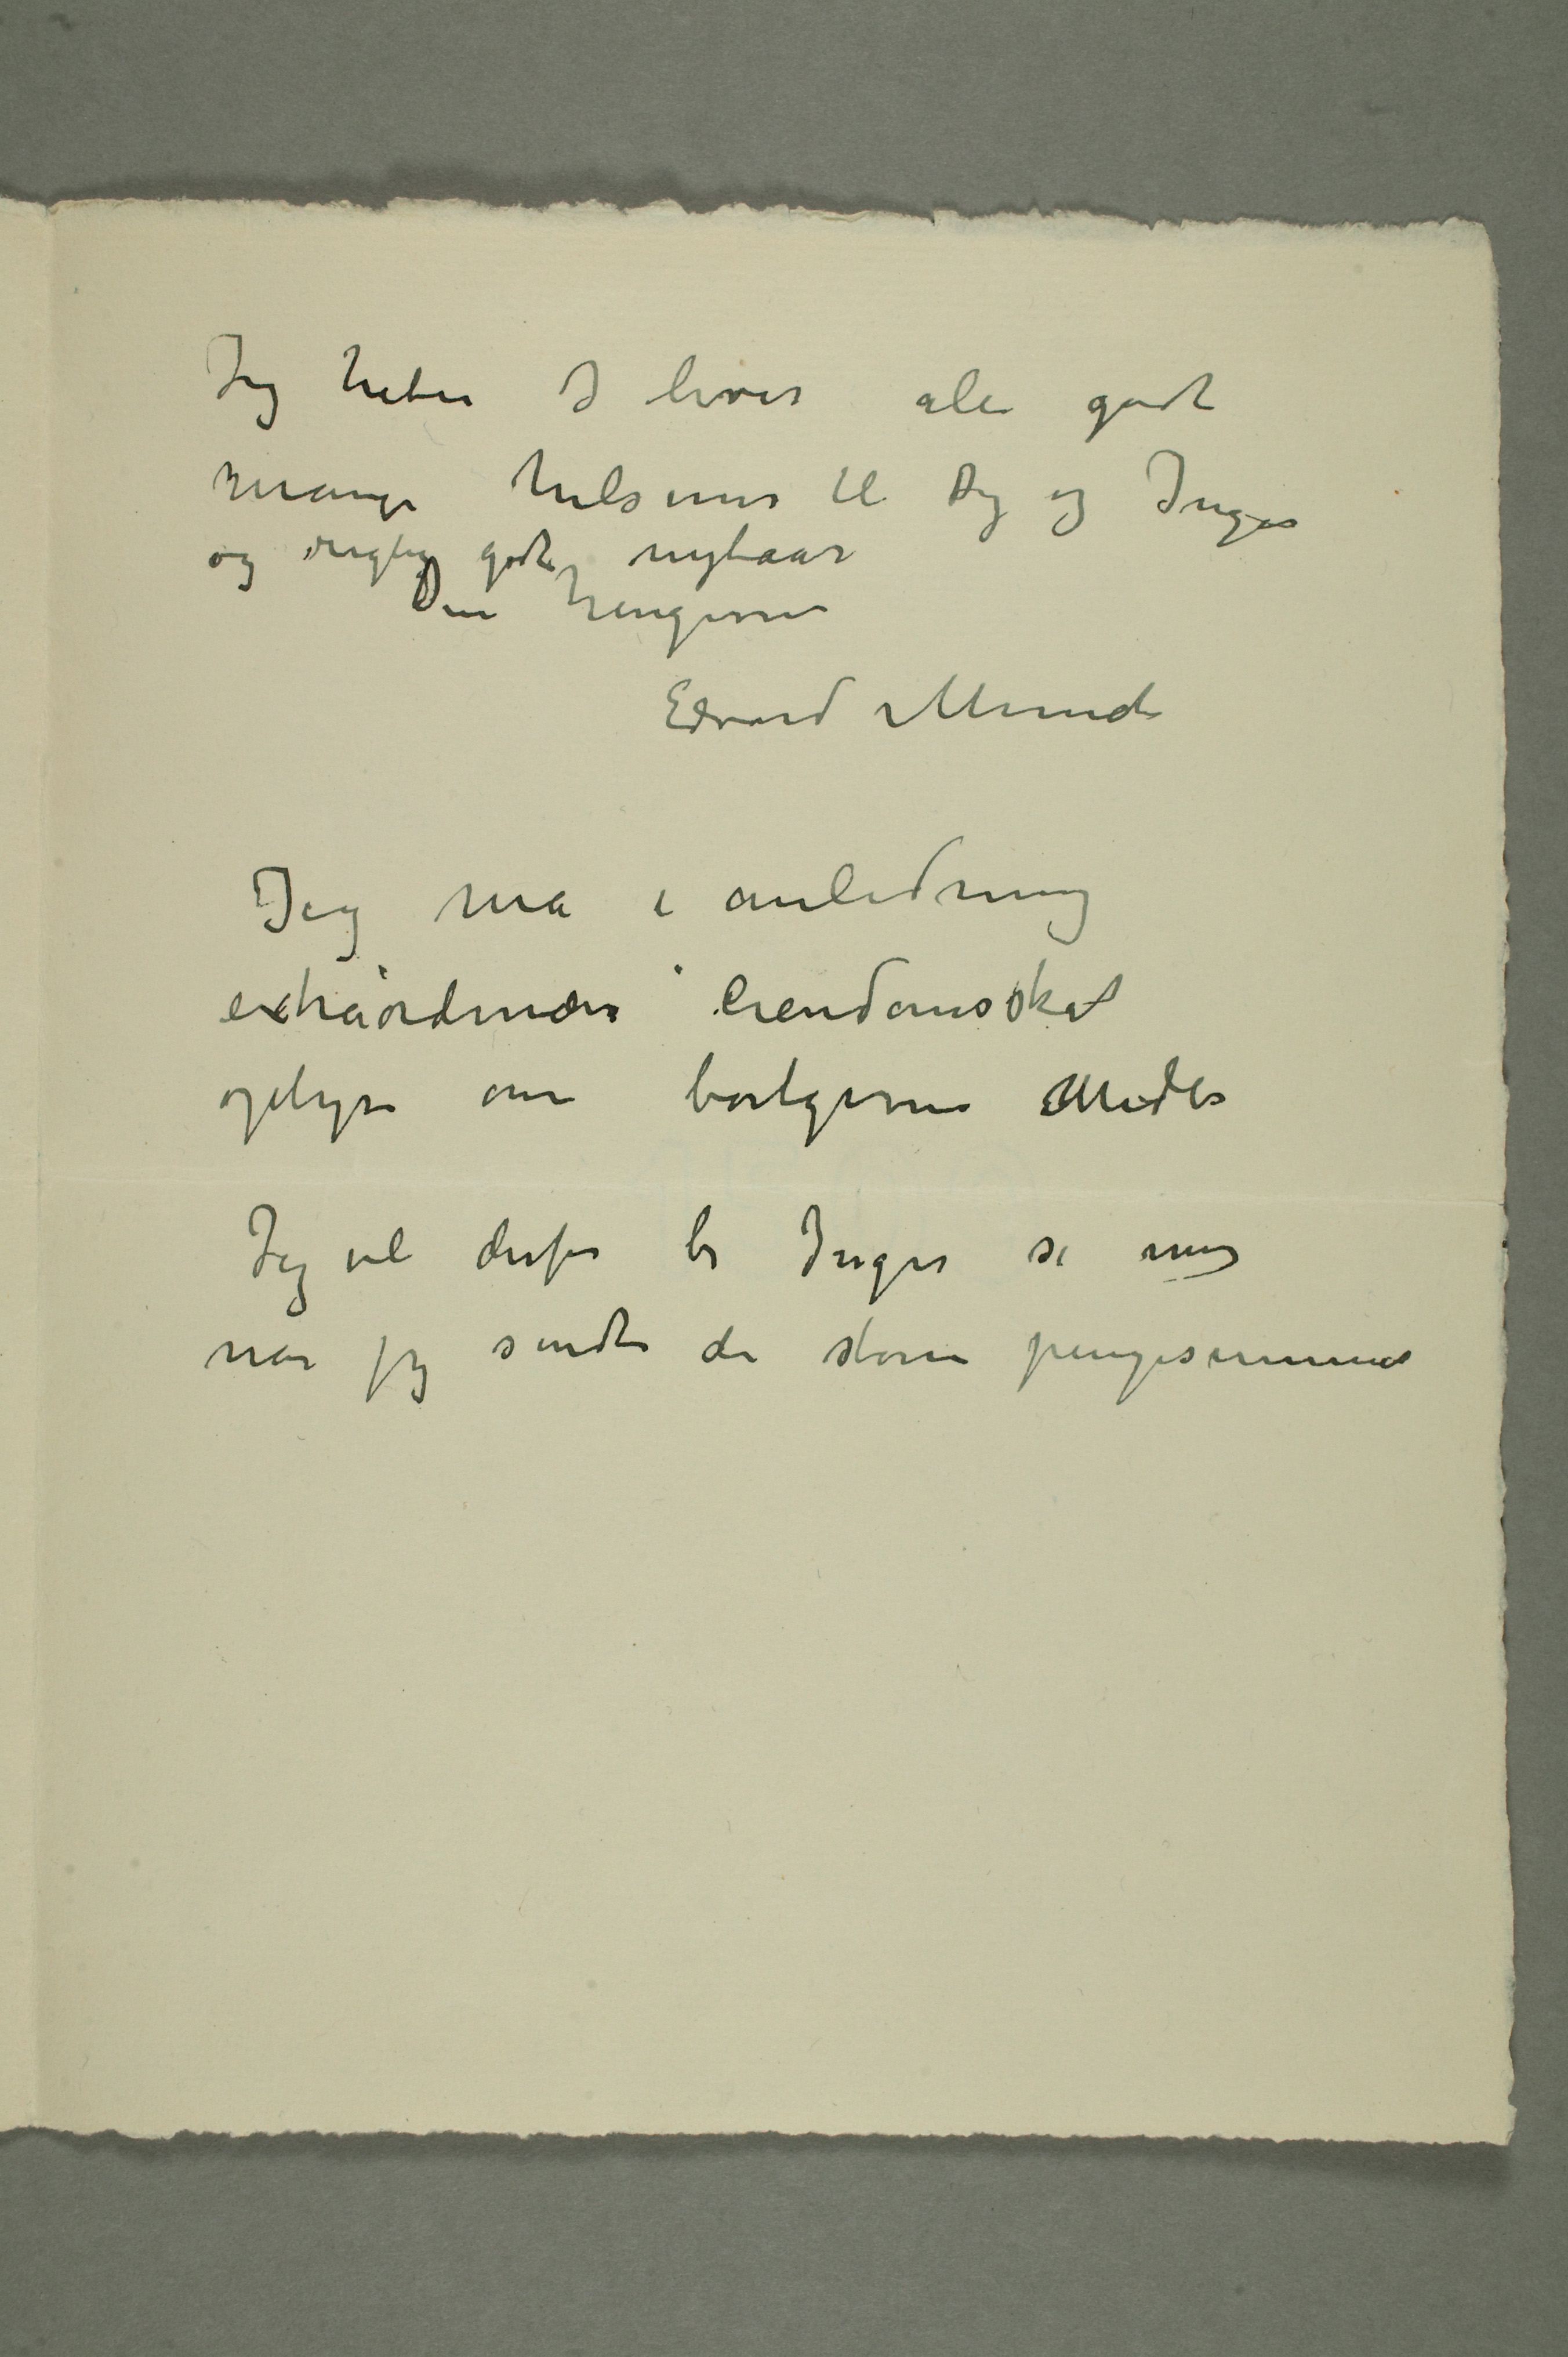 Jeg håber I lever alle godt
mange hilsener til Dig og Inger
og rigtig godt nytaar
Din hengivne
Edvard Munch
Jeg må i anledning
extraordinær eiendomsskat
oplyse om bortgivne Midler
Jeg vil derfor be Inger si mig
når jeg sendte de større pengesummer